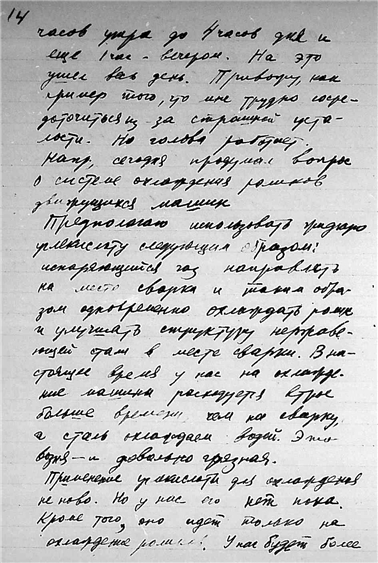 14
часов утра до 4 часов дня и
еще 1 час - вечером. На это
ушел весь день. Привожу, как
пример того, что мне трудно сосре-
доточиться из-за страшной уста-
лости. Но голова работает.
Напр, сегодня продумал вопрос
о системе охлаждения роликов
движущихся машин
Предполагаю использовать жидкую
углекислоту следующим образом:
испаряющийся газ направлять
на место сварки и таким обра-
зом одновременно охлаждать ролик
и улучшать структуру нержаве-
ющей стали в месте сварки. В на-
стоящее время у нас на охлажде-
ние машины расходуется втрое
больше времени, чем на сварку,
а сталь охлаждаем водой. Это
водня - и довольно грязная.
Применение углекислоты для охлаждения
не ново. Но у нас его нет пока.
Кроме того, оно идет только на
охлаждение роликов. У нас будет более